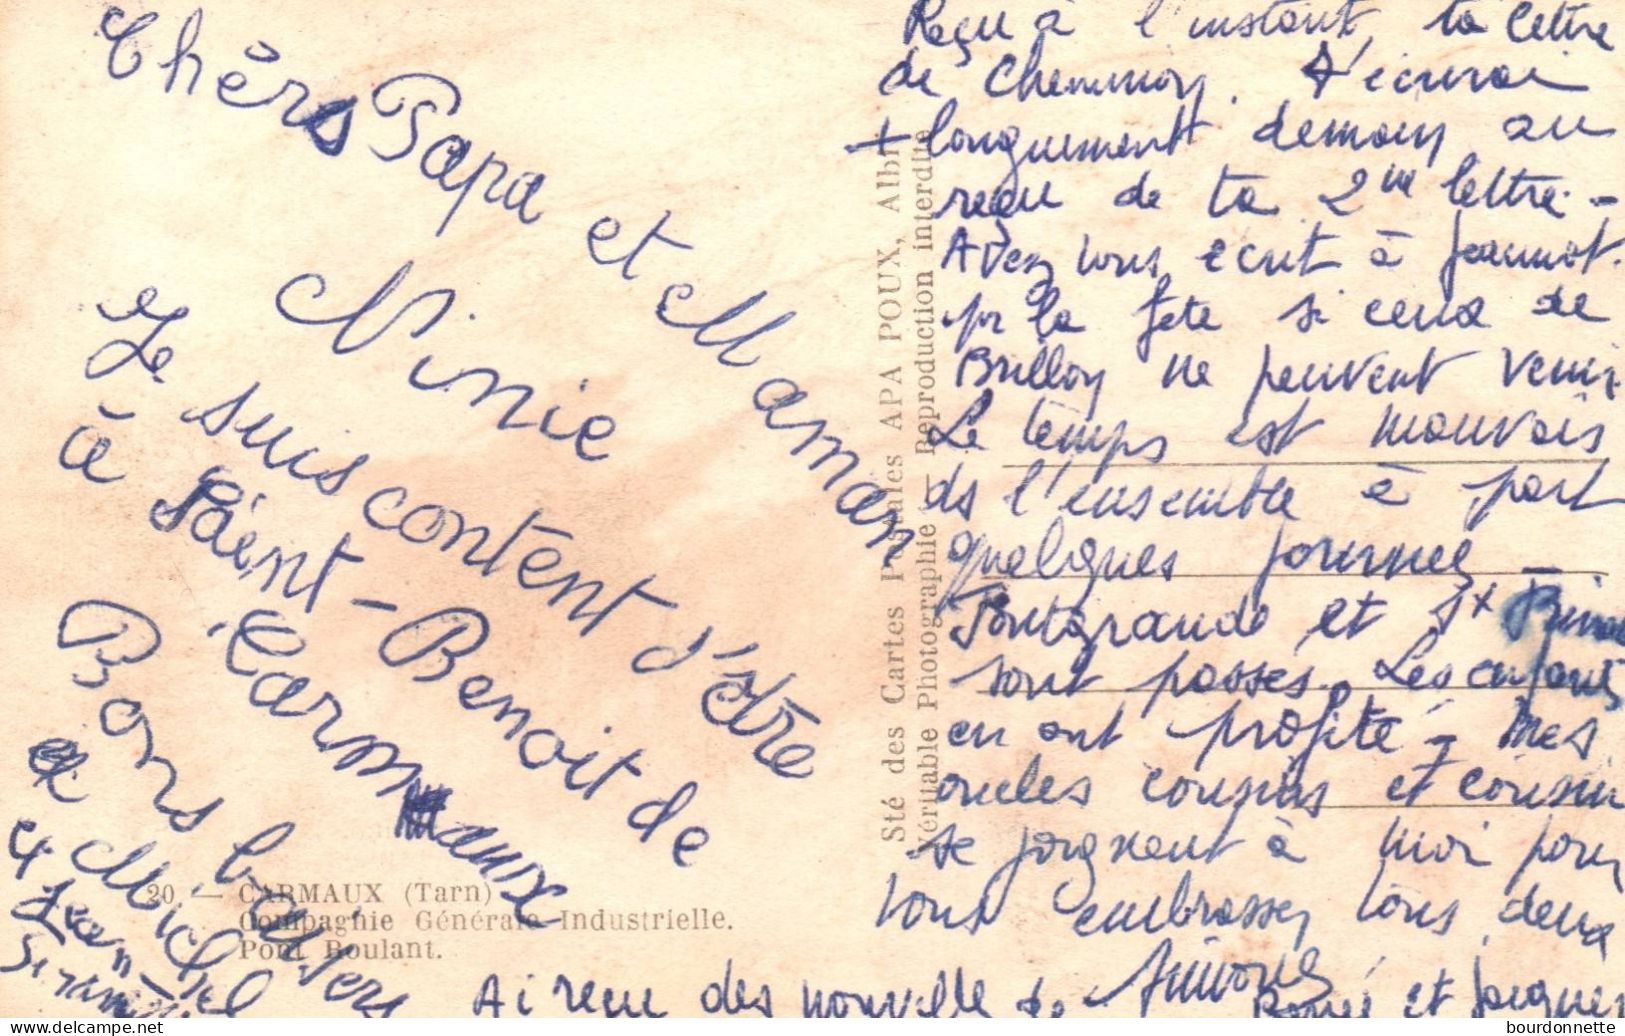 Chèrs Papa et Maman
Ninie
Je suis content d'être
à Saint-Benoit de
Carmaux
Bons baisers
et Michel
et Jean-
20. — CARMAUX (Tarn)
Compagnie Générale Industrielle.
Pont Roulant.
Sté des Cartes Postales APA POUX, Albi
Véritable Photographie — Reproduction interdite
Reçu à l'instant, ta lettre
de Cheminon. T'écrirai
+ longuement demain au
reçu de ta 2me lettre. -
Avez vous écrit à Jeannot.
pr la fête si ceux de
Brillon ne peuvent venir
Le temps est mauvais
ds l'ensemble à part
quelques journées -
Pontgrande et St
sont passés. Les enfants
en ont profité - Mes
oncles cousins et cousin
se joignent à moi pour
vous embrasser tous deux
Simone
Ai reçu des nouvelle de Renée et Jacques
bourdonnette